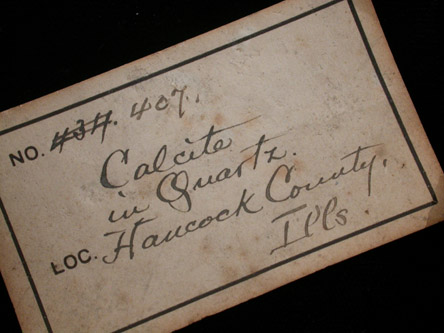 NO. 434. 407.
Calcite
in Quartz.
LOC. Hancock County,
Ills.